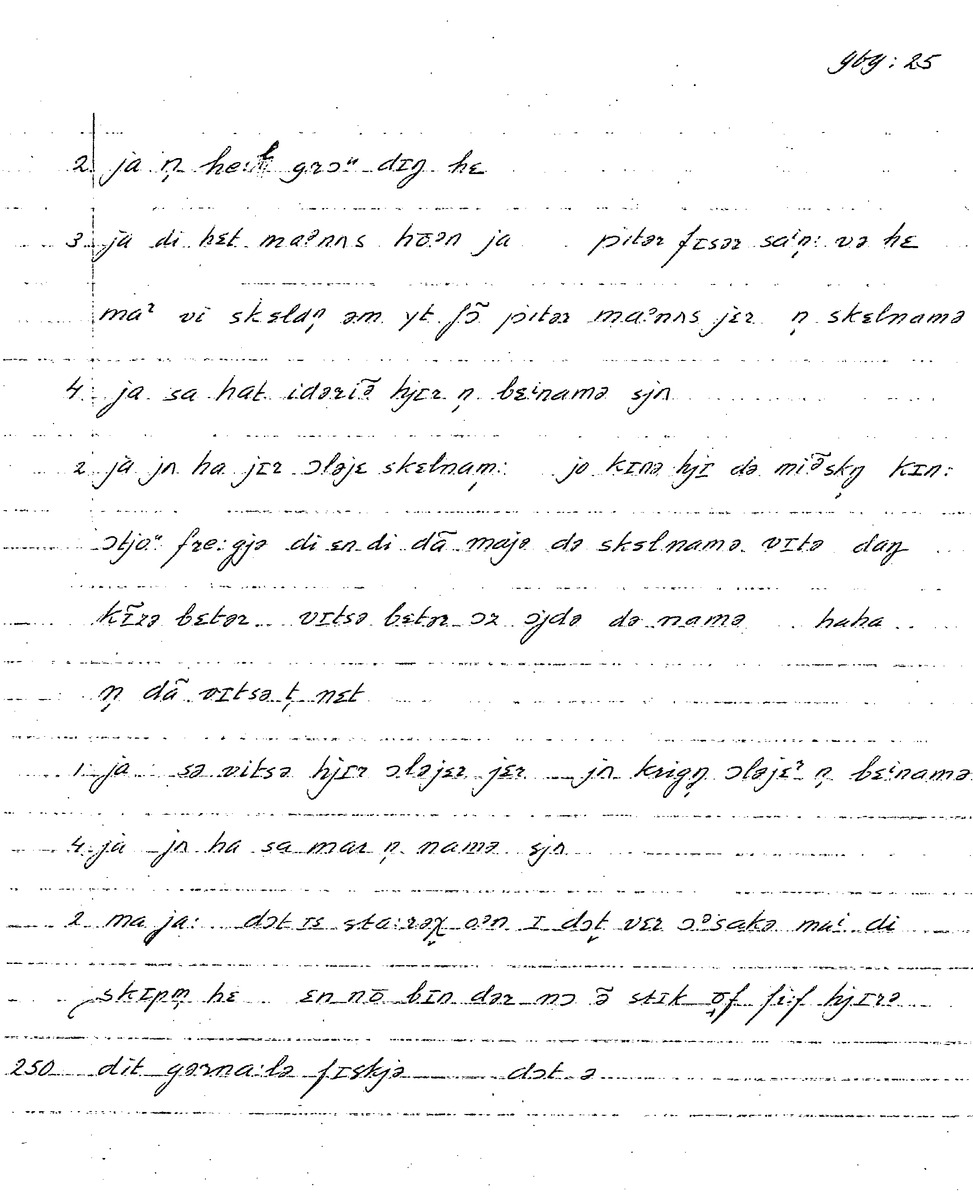 yby: 25
2 ja n̩ he:l grɔᵘ dɪŋ hɛ
3 ja di hɛt maᵊnʌs hõᵊn ja pitər fɪsər saⁱn̩: və hɛ
maˀ vi skɛldn̩ əm yt fɔ̃ pitər maᵊnʌs jɛr n̩ skɛlnamə
4 ja sa hat idəriə̃ hjɪr n̩ bɛⁱnamə ɛjn
2 ja jn ha jɪr ɔləjɛ skɛlnam̩: jo kɪnə hjɪ də miə̃skŋ̩ kɪn:
ɔtjoᵘ fre:gjə di ɛn di dã majə də skɛlnamə vɪtə daŋ
kĩrə bɛtər vɪtsə bɛtər ɔr ɔjdə də namə haha
n̩ dã vɪtsə t̩ nɛt
1 ja sə vitsə hjɪr ɔləjɛr jɛr jn krigŋ̩ ɔləjɛˀ n̩ bɛⁱnamə
4 ja jn ha sa mar n̩ namə ɛjn
2 ma ja: dɔt ɪs sta:rəχ oᵊn ɪ dɔt vɛr ɔᵊsakə maⁱ di
skɪpm̩ hɛ ɛn nõ bɪn dər nɔ ə̃ stik õf fi:f hjɪrə
250 dit gərna:lə fɪskjə dɔt ə